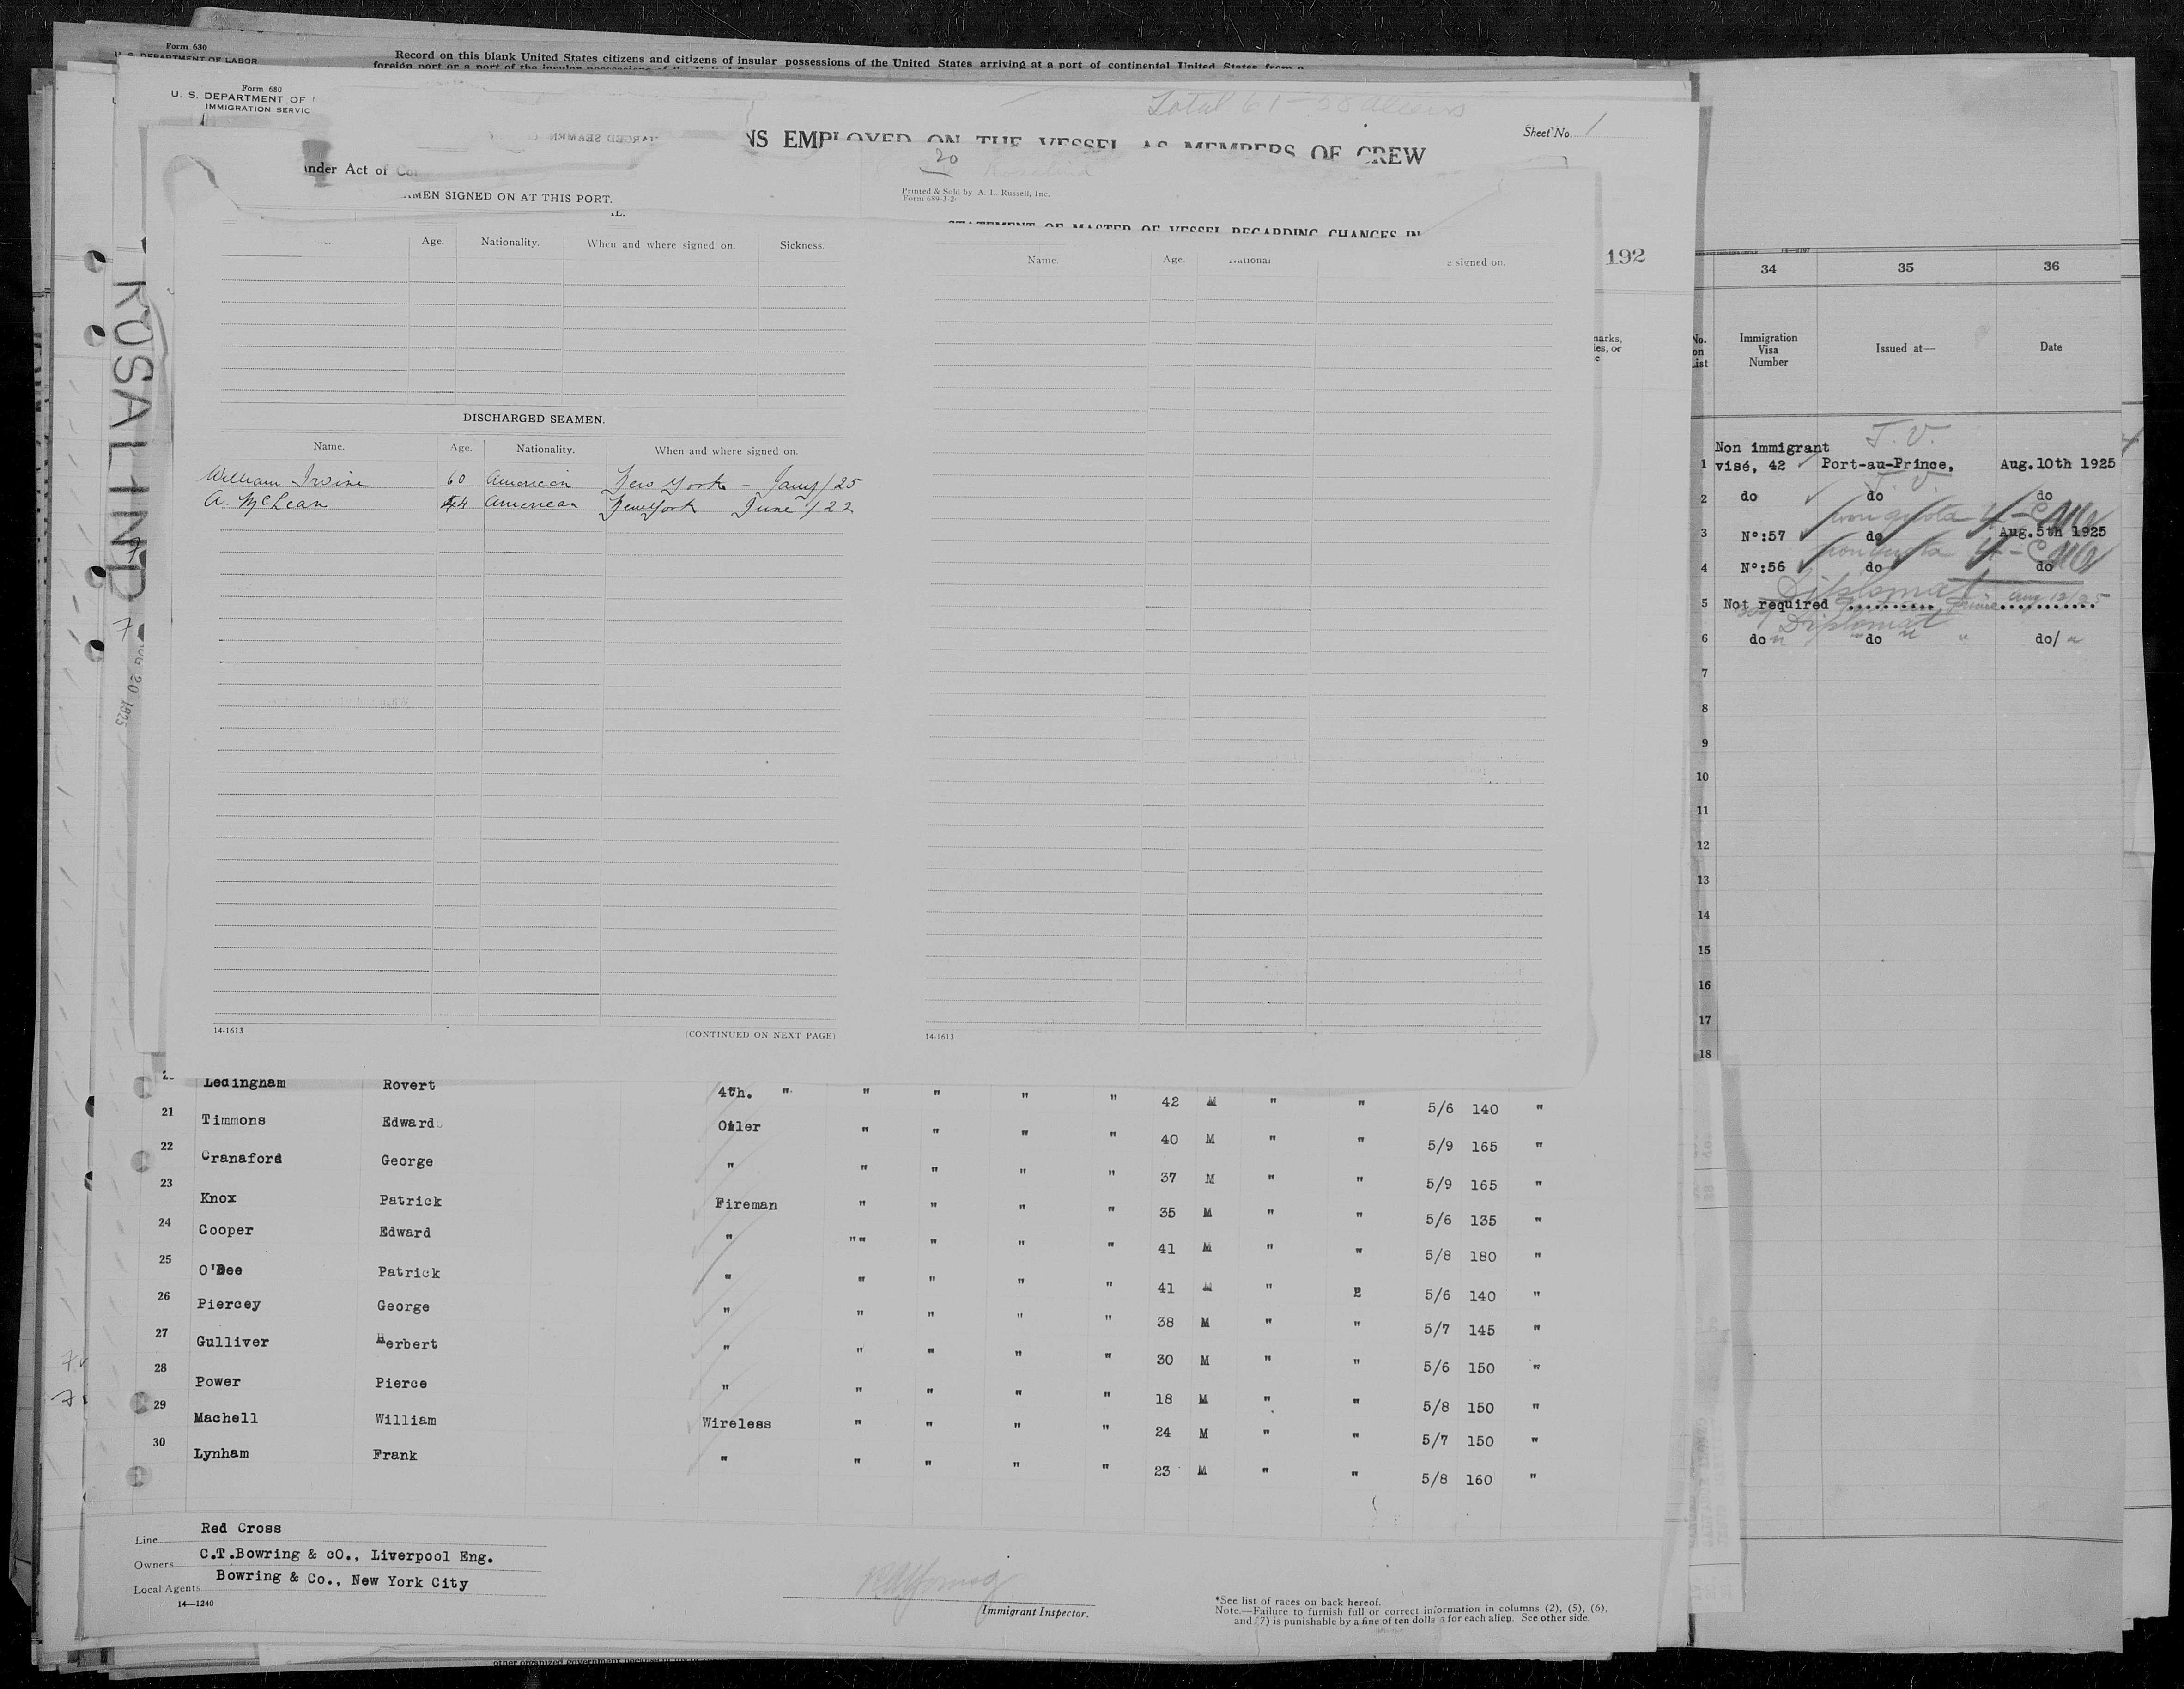 Form 630
U. S. DEPARTMENT OF LABOR
Record on this blank United States citizens and citizens of insular possessions of the United States arriving at a port of continental United States from a
foreign port or a port of the insular possessions of the
Form 680
U. S. DEPARTMENT OF
IMMIGRATION SERVIC
Total 61 - 58 aliens
NS EMPLOYED ON THE VESSEL AS MEMBERS OF CREW
Sheet No. 1
20
Rosalind
under Act of Co
MEN SIGNED ON AT THIS PORT.
Printed & Sold by A. L. Russell, Inc.
Form 689-3-2
STATEMENT OF MASTER OF VESSEL REGARDING CHANGES IN
Age. Nationality. When and where signed on. Sickness.
Name. Age. National e signed on.
192
ROSALIND
AUG 20 1925
7
7
DISCHARGED SEAMEN.
Name. Age. Nationality. When and where signed on.
William Irvine 60 American New York - Jany/25
A. McLean 44 American New York June/22
14-1613 (CONTINUED ON NEXT PAGE)
14-1613
marks,
ies, or
e
34 35 36
No. on List Immigration Visa Number Issued at— Date
T. V.
Non immigrant
1 visé, 42 Port-au-Prince, Aug.10th 1925
T. V.
2 do do do
non quota 4 -
3 Nº:57 do Aug.5th 1925
non quota 4 -
4 Nº:56 do do
Diplomat
5 Not required Aug 12/25
Diplomat
6 do " do " " do/ "
7
8
9
10
11
12
13
14
15
16
17
18
Ledingham Rovert 4th. " " " " " 42 M " " 5/6 140 "
21 Timmons Edward Oiler " " " " 40 M " " 5/9 165 "
22 Cranaford George " " " " " 37 M " " 5/9 165 "
23 Knox Patrick Fireman " " " " 35 M " " 5/6 135 "
24 Cooper Edward " "" " " " 41 M " " 5/8 180 "
25 O'Dee Patrick " " " " " 41 M " " 5/6 140 "
26 Piercey George " " " " " 38 M " " 5/7 145 "
27 Gulliver Herbert " " " " " 30 M " " 5/6 150 "
28 Power Pierce " " " " " 18 M " " 5/8 150 "
29 Machell William Wireless " " " " 24 M " " 5/7 150 "
30 Lynham Frank " " " " " 23 M " " 5/8 160 "
Line Red Cross
Owners C.T.Bowring & cO., Liverpool Eng.
Local Agents Bowring & Co., New York City
14—1240
Immigrant Inspector.
*See list of races on back hereof.
Note.—Failure to furnish full or correct information in columns (2), (5), (6),
and (7) is punishable by a fine of ten dollars for each alien. See other side.